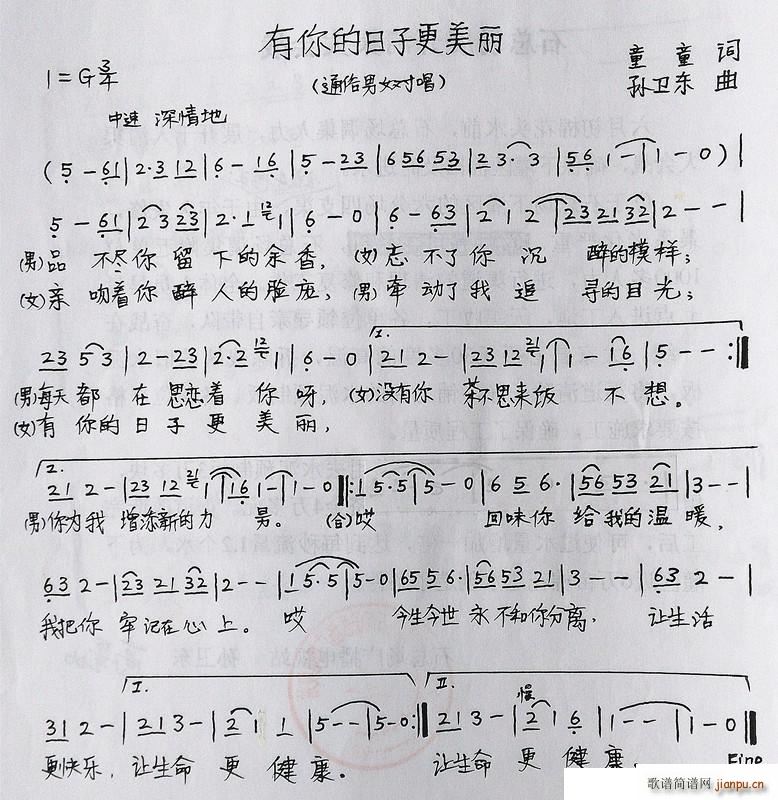 有你的日子更美丽
1=G 3/4
(通俗男女对唱)
童童 词
孙卫东 曲
中速 深情地
(5 - 61 | 2·3 12 | 6 - 16 | 5 - 23 | 6 56 53 | 2 3· 3 | 56 1 - | 1 - 0) |
5 - 61 | 2 3 23 | 2 · 1 12 1 | 6 - 0 | 6 - 63 | 2 1 2 | 23 21 32 | 2 - - |
(男)品 不尽你 留 下的余香, (女)忘 不了你 沉 醉的模样;
(女)亲 吻着你 醉 人的脸庞; (男)牵 动了我 追 寻的目光;
1.
23 5 3 | 2 - 23 | 2·2 12 1 | 6 - 0 | 21 2 - | 23 12 21 1 | 1 - 16 | 5 - - :||
(男)每天都 在 思恋着 你 呀, (女)没有你 茶不思来饭 不 想。
(女)有 你的日 子 更 美 丽,
2.
21 2 - | 23 12 21 1 | 16 1 - | 1 - 0 ||: 1 5·5 | 5 - 0 | 6 5 6· | 56 53 21 | 3 - - |
(男)你为我 增添新的力 量。 (合)哎 回味你 给我的温 暖,
63 2 - | 23 21 32 | 2 - - | 1 5·5 | 5 - 0 | 65 5 6· | 56 53 21 | 3 - - | 63 2 - |
我把你 牢记在心上。 哎 今生今世 永不和你分离, 让生活
I.
II.
慢
31 2 - | 21 3 - | 2 1 1 | 5 - - | 5 - 0 :|| 21 3 - | 2 1 6 | 1 - - | 1 - 0 ||
更快乐, 让生命 更 健 康。 让生命 更 健 康。 Fine
歌谱简谱网 jianpu.cn